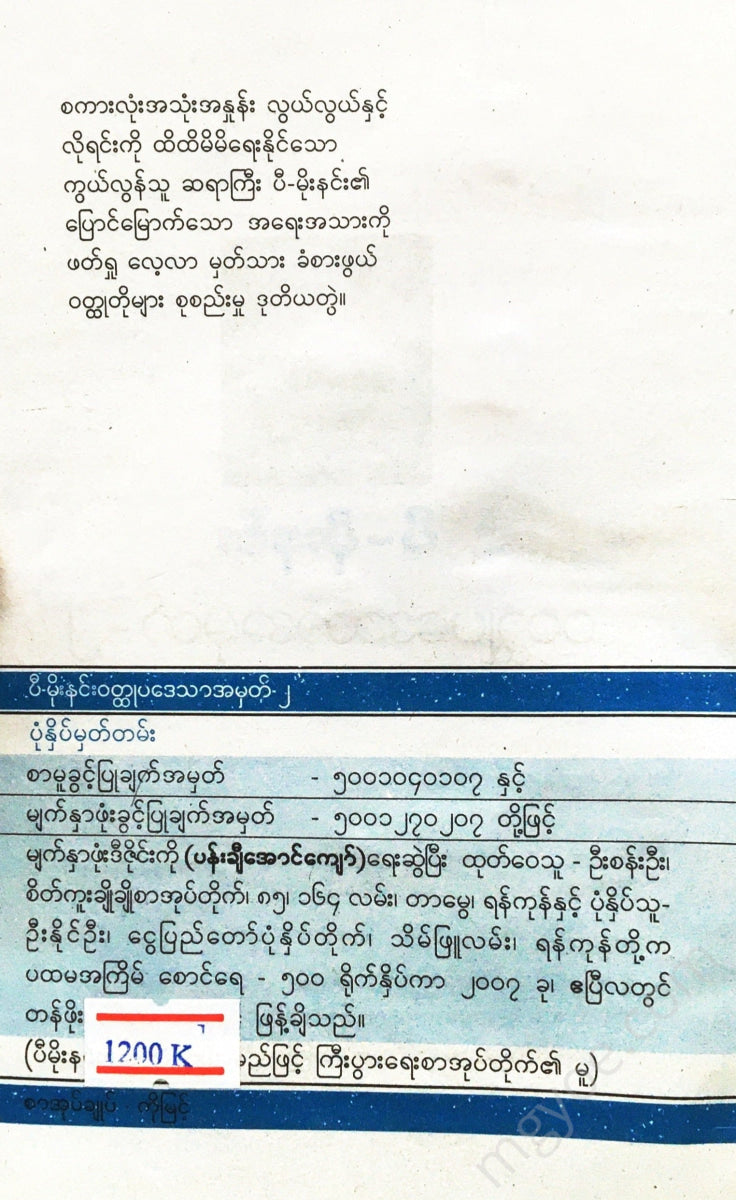 စကားလုံးအသုံးအနှုန်း လွယ်လွယ်နှင့်
လိုရင်းကို ထိထိမိမိရေးနိုင်သော
ကွယ်လွန်သူ ဆရာကြီး ပီ-မိုးနင်း၏
ပြောင်မြောက်သော အရေးအသားကို
ဖတ်ရှု လေ့လာ မှတ်သား ခံစားဖွယ်
ဝတ္ထုတိုများ စုစည်းမှု ဒုတိယတွဲ။
ပီ-မိုးနင်းဝတ္ထုပဒေသာအမှတ်-၂
ပုံနှိပ်မှတ်တမ်း
စာမူခွင့်ပြုချက်အမှတ် - ၅၀၀၁၀၄၀၁၀၇ နှင့်
မျက်နှာဖုံးခွင့်ပြုချက်အမှတ် - ၅၀၀၁၂၇၀၂၀၇ တို့ဖြင့်
မျက်နှာဖုံးဒီဇိုင်းကို (ပန်းချီအောင်ကျော်)ရေးဆွဲပြီး ထုတ်ဝေသူ - ဦးစန်းဦး၊
စိတ်ကူးချိုချိုစာအုပ်တိုက်၊ ၈၅၊ ၁၆၄ လမ်း၊ တာမွေ၊ ရန်ကုန်နှင့် ပုံနှိပ်သူ-
ဦးနိုင်ဦး၊ ငွေပြည်တော်ပုံနှိပ်တိုက်၊ သိမ်ဖြူလမ်း၊ ရန်ကုန်တို့က
ပထမအကြိမ် စောင်ရေ - ၅၀၀ ရိုက်နှိပ်ကာ ၂၀၀၇ ခု၊ ဧပြီလတွင်
တန်ဖိုး ဖြန့်ချိသည်။
1200 K
(ပီမိုးန မည်ဖြင့် ကြီးပွားရေးစာအုပ်တိုက်၏ မူ)
စာအုပ်ချုပ် - ကိုမြင့်